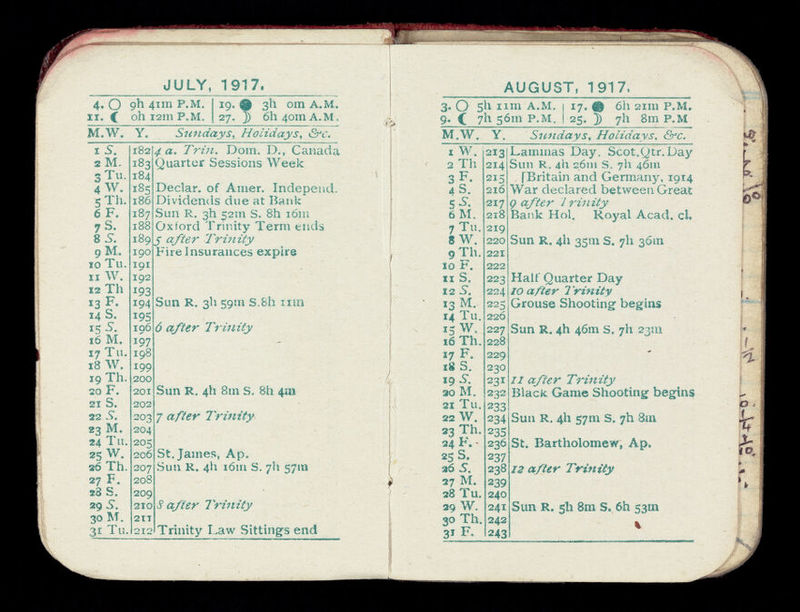 JULY, 1917.
4. ○ 9h 41m P.M. | 19. ● 3h 0m A.M.
11. ☾ 0h 12m P.M. | 27. ☽ 6h 40m A.M.
M.W. Y. Sundays, Holidays, &c.
1 S. 182 4 a. Trin. Dom. D., Canada
2 M. 183 Quarter Sessions Week
3 Tu. 184
4 W. 185 Declar. of Amer. Independ.
5 Th. 186 Dividends due at Bank
6 F. 187 Sun R. 3h 52m S. 8h 16m
7 S. 188 Oxford Trinity Term ends
8 S. 189 5 after Trinity
9 M. 190 Fire Insurances expire
10 Tu. 191
11 W. 192
12 Th 193
13 F. 194 Sun R. 3h 59m S. 8h 11m
14 S. 195
15 S. 196 6 after Trinity
16 M. 197
17 Tu. 198
18 W. 199
19 Th. 200
20 F. 201 Sun R. 4h 8m S. 8h 4m
21 S. 202
22 S. 203 7 after Trinity
23 M. 204
24 Tu. 205
25 W. 206 St. James, Ap.
26 Th. 207 Sun R. 4h 16m S. 7h 57m
27 F. 208
28 S. 209
29 S. 210 8 after Trinity
30 M. 211
31 Tu. 212 Trinity Law Sittings end
AUGUST, 1917.
3. ○ 5h 11m A.M. | 17. ● 6h 21m P.M
9. ☾ 7h 56m P.M. | 25. ☽ 7h 8m P.M
M.W. Y. Sundays, Holidays, &c.
1 W. 213 Lammas Day. Scot. Qtr. Day
2 Th 214 Sun R. 4h 26m S. 7h 46m
3 F. 215 [Britain and Germany, 1914
4 S. 216 War declared between Great
5 S. 217 9 after Trinity
6 M. 218 Bank Hol. Royal Acad. cl.
7 Tu. 219
8 W. 220 Sun R. 4h 35m S. 7h 36m
9 Th. 221
10 F. 222
11 S. 223 Half Quarter Day
12 S. 224 10 after Trinity
13 M. 225 Grouse Shooting begins
14 Tu. 226
15 W. 227 Sun R. 4h 46m S. 7h 23m
16 Th. 228
17 F. 229
18 S. 230
19 S. 231 11 after Trinity
20 M. 232 Black Game Shooting begins
21 Tu. 233
22 W. 234 Sun R. 4h 57m S. 7h 8m
23 Th. 235
24 F. 236 St. Bartholomew, Ap.
25 S. 237
26 S. 238 12 after Trinity
27 M. 239
28 Tu. 240
29 W. 241 Sun R. 5h 8m S. 6h 53m
30 Th. 242
31 F. 243